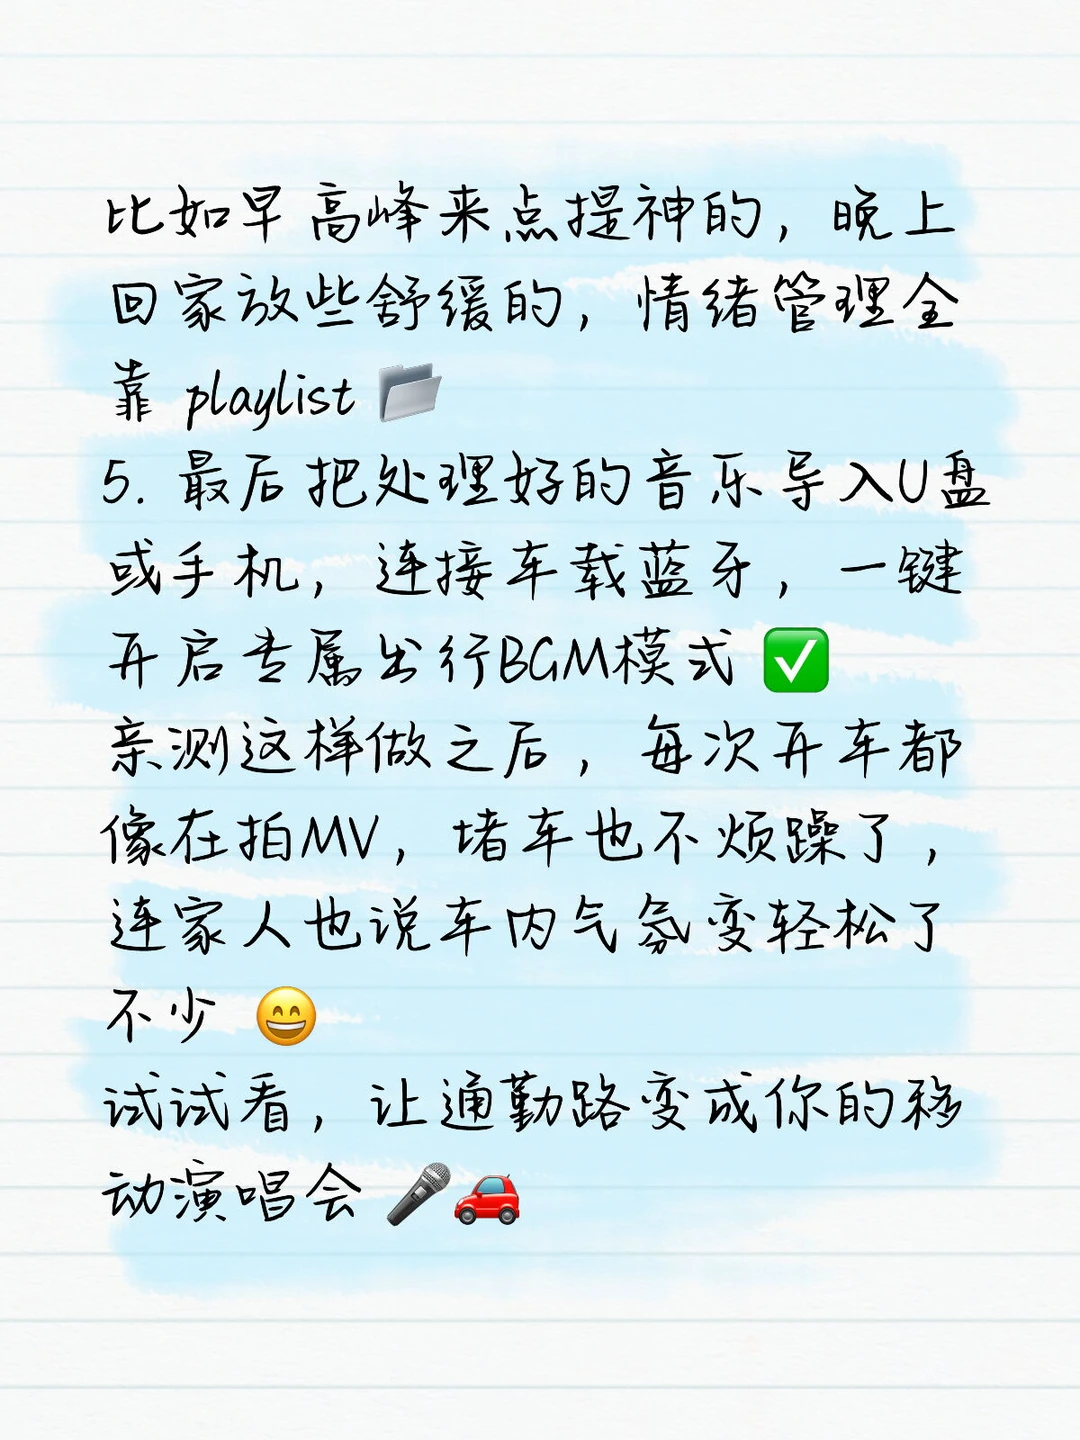 比如早高峰来点提神的，晚上
回家放些舒缓的，情绪管理全
靠 playlist 📁
5. 最后把处理好的音乐导入U盘
或手机，连接车载蓝牙，一键
开启专属出行BGM模式 ✅
亲测这样做之后，每次开车都
像在拍MV，堵车也不烦躁了，
连家人也说车内气氛变轻松了
不少 😄
试试看，让通勤路变成你的移
动演唱会 🎤🚗